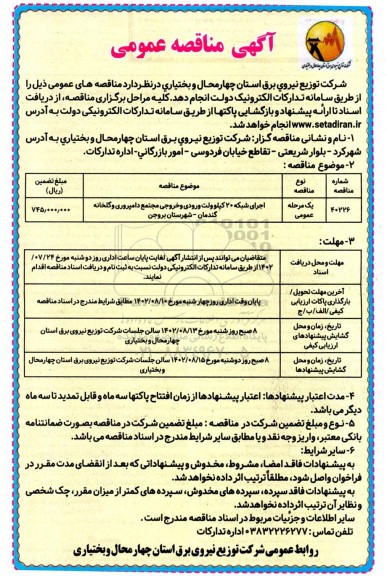 آگهی مناقصه عمومی
شرکت توزیع نیروی برق استان چهارمحال و بختیاری درنظر دارد مناقصه های عمومی ذیل را
از طریق سامانه تدارکات الکترونیک دولت انجام دهد. کلیه مراحل برگزاری مناقصه، از دریافت
اسناد تا ارائه پیشنهاد و بازگشایی پاکتها از طریق سامانه تدارکات الکترونیکی دولت به آدرس
www.setadiran.ir انجام خواهد شد.
۱- نام و نشانی مناقصه گزار: شرکت توزیع نیروی برق استان چهارمحال و بختیاری به آدرس
شهرکرد - بلوار شریعتی - تقاطع خیابان فردوسی - امور بازرگانی-اداره تدارکات.
۲- موضوع مناقصه :
شماره مناقصه
نوع مناقصه
موضوع مناقصه
مبلغ تضمین (ریال)
۴۰۲۲۶
یک مرحله عمومی
اجرای شبکه ۲۰ کیلوولت ورودی و خروجی مجتمع دامپروری و گلخانه
گندمان - شهرستان بروجن
۷۴۵,۰۰۰,۰۰۰
۳- مهلت :
مهلت و محل دریافت اسناد
متقاضیان می توانند پس از انتشار آگهی لغایت پایان ساعت اداری روز دوشنبه مورخ ۰۷/۲۴/
۱۴۰۲ از طریق سامانه تدارکات الکترونیکی دولت نسبت به ثبت نام و دریافت اسناد مناقصه اقدام
نمایند.
آخرین مهلت تحویل/بارگذاری پاکات ارزیابی کیفی/الف/ب/ج
پایان وقت اداری روز چهارشنبه مورخ ۱۴۰۲/۰۸/۱۰ مطابق شرایط مندرج در اسناد مناقصه
تاریخ، زمان و محل گشایش پیشنهادهای ارزیابی کیفی
۸ صبح روز شنبه مورخ ۱۴۰۲/۰۸/۱۳ سالن جلسات شرکت توزیع نیروی برق استان
چهارمحال و بختیاری
تاریخ، زمان و محل گشایش پیشنهادها
۸ صبح روز دوشنبه مورخ ۱۴۰۲/۰۸/۱۵ سالن جلسات شرکت توزیع نیروی برق استان چهارمحال
و بختیاری
۴- مدت اعتبار پیشنهادها: اعتبار پیشنهادها از زمان افتتاح پاکتها سه ماه و قابل تمدید تا سه ماه
دیگر می باشد.
۵- نوع و مبلغ تضمین شرکت در مناقصه : مبلغ تضمین شرکت در مناقصه بصورت ضمانتنامه
بانکی معتبر، واریز وجه نقد و یا مطابق سایر شرایط مندرج در اسناد مناقصه می باشد.
۶- سایر شرایط:
به پیشنهادات فاقد امضا، مشروط، مخدوش و پیشنهاداتی که بعد از انقضای مدت مقرر در
فراخوان واصل شود، مطلقاً ترتیب اثر داده نخواهد شد.
به پیشنهادات فاقد سپرده، سپرده های مخدوش، سپرده های کمتر از میزان مقرر، چک شخصی
و نظایر آن ترتیب اثر داده نخواهد شد.
سایر اطلاعات و جزئیات مربوط در اسناد مناقصه مندرج است.
تلفن تماس: ۰۳۸۳۲۲۲۶۲۷۷ اداره تدارکات
روابط عمومی شرکت توزیع نیروی برق استان چهارمحال وبختیاری